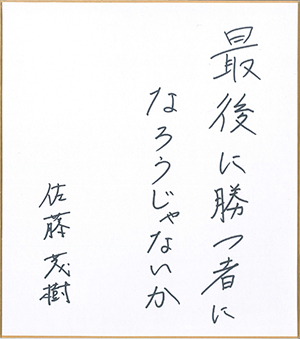 最後に勝つ者に
なろうじゃないか
佐藤茂樹